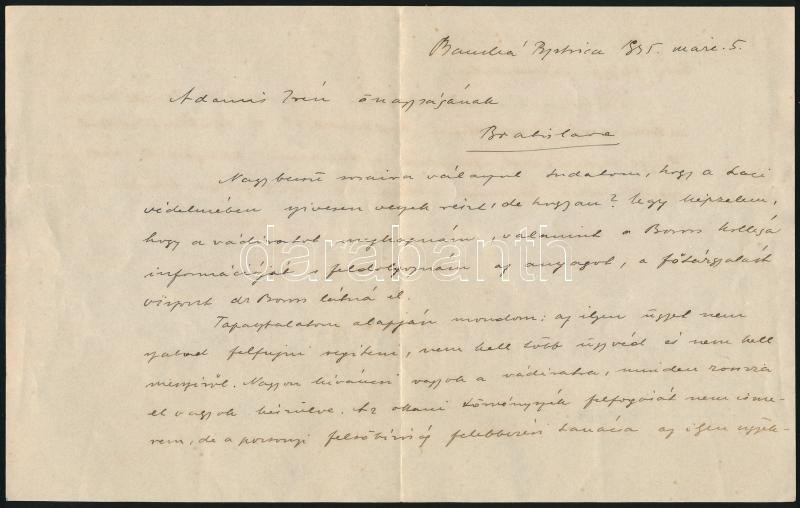 Banská Bystrica 1935. márc. 5.
Adamis Irén őnagyságának
Bratislava
Nagybecsű soraira válaszul tudatom, hogy a Laci
védelmében szivesen veszek részt, de hogyan? Úgy képzelem,
hogy a vádiratot megkapnám, valamint a Boros kolléga
információját s feldolgoznám az anyagot, a főtárgyalást
viszont dr Boros látná el.
Tapasztalatom alapján mondom: az ilyen ügyet nem
szabad felfujni, nem kell több ügyvéd és nem kell
messziről. Nagyon kiváncsi vagyok a vádiratra, minden rosszra
el vagyok készülve. Az ottani törvényszék felfogását nem isme-
rem, de a pozsonyi felsőbíróság fellebbezési tanácsa az ilyen ügyek-
darabanth